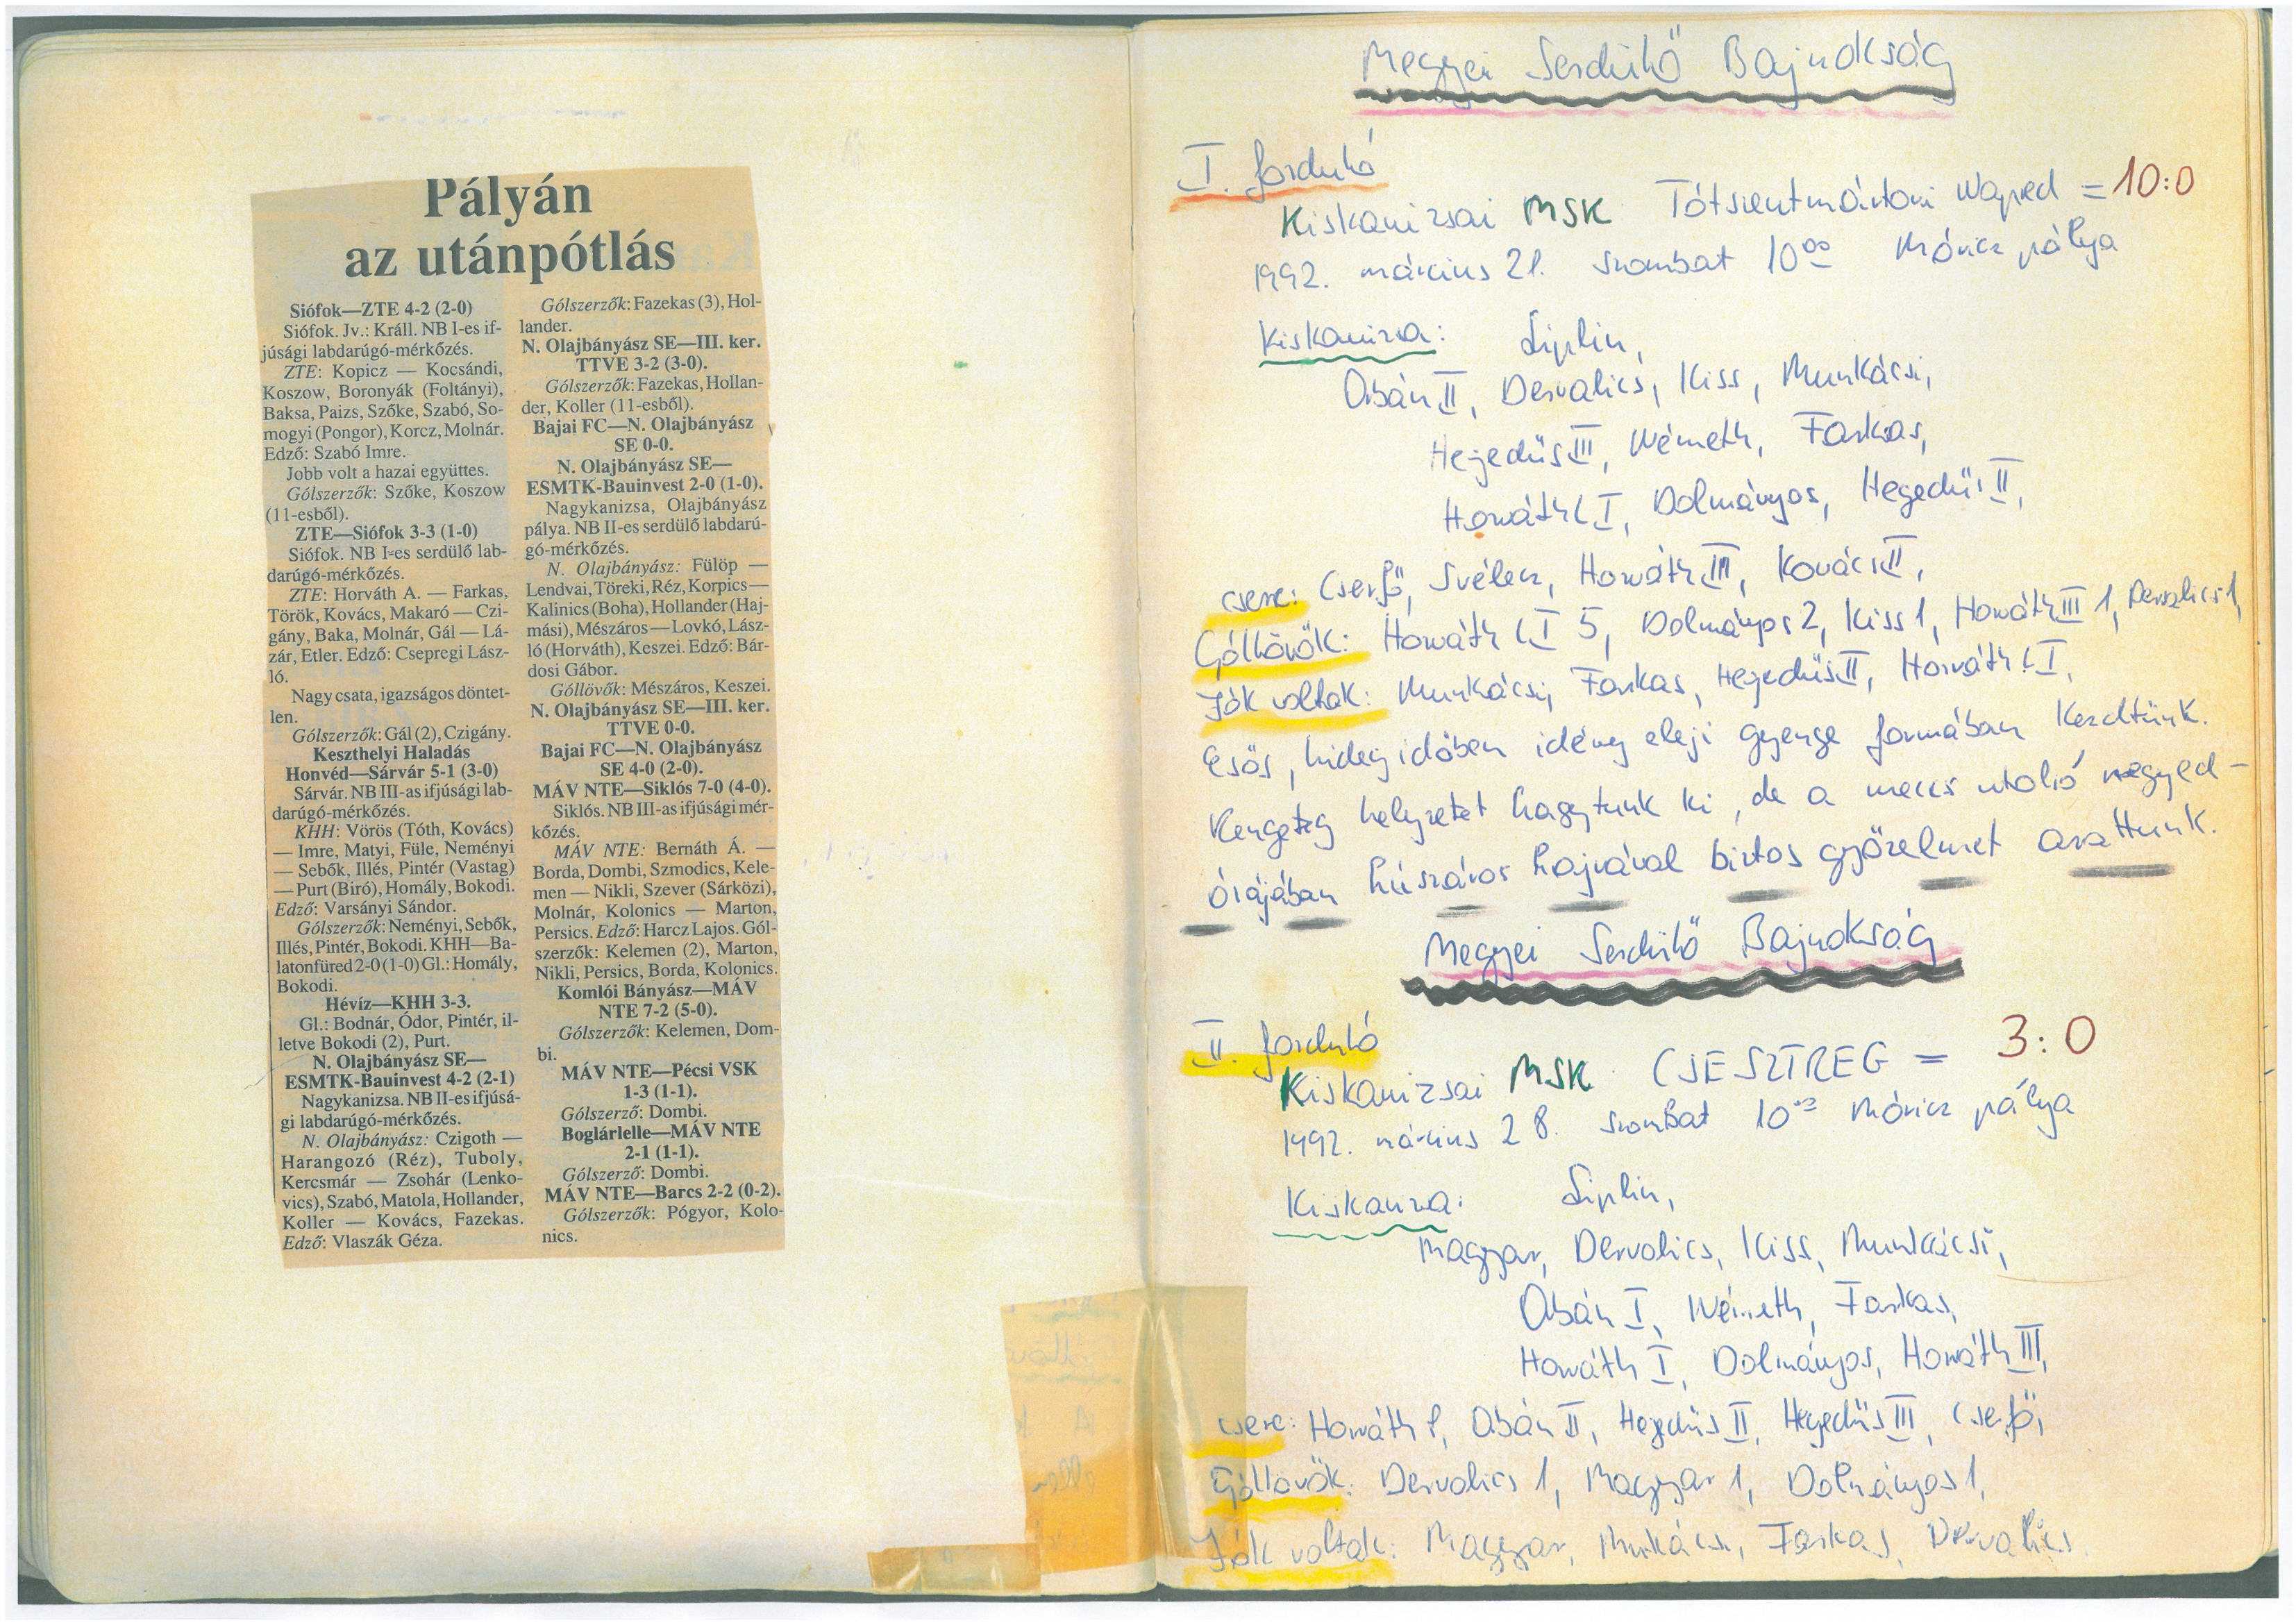 Pályán
az utánpótlás
Siófok—ZTE 4-2 (2-0)
Siófok. Jv.: Králl. NB I-es if-
júsági labdarúgó-mérkőzés.
ZTE: Kopicz — Kocsándi,
Koszow, Boronyák (Foltányi),
Baksa, Paizs, Szőke, Szabó, So-
mogyi (Pongor), Korcz, Molnár.
Edző: Szabó Imre.
Jobb volt a hazai együttes.
Gólszerzők: Szőke, Koszow
(11-esből).
ZTE—Siófok 3-3 (1-0)
Siófok. NB I-es serdülő lab-
darúgó-mérkőzés.
ZTE: Horváth A. — Farkas,
Török, Kovács, Makaró — Czi-
gány, Baka, Molnár, Gál — Lá-
zár, Etler. Edző: Csepregi Lász-
ló.
Nagy csata, igazságos döntet-
len.
Gólszerzők: Gál (2), Czigány.
Keszthelyi Haladás
Honvéd—Sárvár 5-1 (3-0)
Sárvár. NB III-as ifjúsági lab-
darúgó-mérkőzés.
KHH: Vörös (Tóth, Kovács)
— Imre, Matyi, Füle, Neményi
— Sebők, Illés, Pintér (Vastag)
— Purt (Biró), Homály, Bokodi.
Edző: Varsányi Sándor.
Gólszerzők: Neményi, Sebők,
Illés, Pintér, Bokodi. KHH—Ba-
latonfüred 2-0 (1-0) Gl.: Homály,
Bokodi.
Hévíz—KHH 3-3.
Gl.: Bodnár, Ódor, Pintér, il-
letve Bokodi (2), Purt.
N. Olajbányász SE—
ESMTK-Bauinvest 4-2 (2-1)
Nagykanizsa. NB II-es ifjúsá-
gi labdarúgó-mérkőzés.
N. Olajbányász: Czigoth —
Harangozó (Réz), Tuboly,
Kercsmár — Zsohár (Lenko-
vics), Szabó, Matola, Hollander,
Koller — Kovács, Fazekas.
Edző: Vlaszák Géza.
Gólszerzők: Fazekas (3), Hol-
lander.
N. Olajbányász SE—III. ker.
TTVE 3-2 (3-0).
Gólszerzők: Fazekas, Hollan-
der, Koller (11-esből).
Bajai FC—N. Olajbányász
SE 0-0.
N. Olajbányász SE—
ESMTK-Bauinvest 2-0 (1-0).
Nagykanizsa, Olajbányász
pálya. NB II-es serdülő labdarú-
gó-mérkőzés.
N. Olajbányász: Fülöp —
Lendvai, Töreki, Réz, Korpics—
Kalinics (Boha), Hollander (Haj-
mási), Mészáros — Lovkó, Lász-
ló (Horváth), Keszei. Edző: Bár-
dosi Gábor.
Góllövők: Mészáros, Keszei.
N. Olajbányász SE—III. ker.
TTVE 0-0.
Bajai FC—N. Olajbányász
SE 4-0 (2-0).
MÁV NTE—Siklós 7-0 (4-0).
Siklós. NB III-as ifjúsági mér-
kőzés.
MÁV NTE: Bernáth Á. —
Borda, Dombi, Szmodics, Kele-
men — Nikli, Szever (Sárközi),
Molnár, Kolonics — Marton,
Persics. Edző: Harcz Lajos. Gól-
szerzők: Kelemen (2), Marton,
Nikli, Persics, Borda, Kolonics.
Komlói Bányász—MÁV
NTE 7-2 (5-0).
Gólszerzők: Kelemen, Dom-
bi.
MÁV NTE—Pécsi VSK
1-3 (1-1).
Gólszerző: Dombi.
Boglárlelle—MÁV NTE
2-1 (1-1).
Gólszerző: Dombi.
MÁV NTE—Barcs 2-2 (0-2).
Gólszerzők: Pógyor, Kolo-
nics.
Megyei Serdülő Bajnokság
I. forduló
Kiskanizsai MSK Tótszentmártoni = 10:0
1992. március 21. szombat 10⁰⁰ Móricz pálya
Kiskanizsa: Siplin,
Obán II, Dervalics, Kiss, Munkácsi,
Hegedüs III, Németh, Farkas,
Horváth I, Dolmányos, Hegedüs II,
csere: Cserfő, Horváth III, Kovács II,
Góllövők: Horváth I 5, Dolmányos 2, Kiss 1, Horváth III 1, Dervalics 1,
Jók voltak: Munkácsi, Farkas, Hegedüs II, Horváth I,
Esős, hideg időben idény eleji gyenge formában kezdtünk.
Rengeteg helyzetet hagytunk ki, de a meccs utolsó negyed-
órájában huszáros hajrával biztos győzelmet arattunk.
Megyei Serdülő Bajnokság
II. forduló
Kiskanizsai MSK CSESZTREG = 3:0
1992. március 28. szombat 10⁰⁰ Móricz pálya
Kiskanizsa: Siplin,
Magyar, Dervalics, Kiss, Munkácsi,
Obán I, Németh, Farkas,
Horváth I, Dolmányos, Horváth III,
csere: Horváth, Obán II, Hegedüs II, Hegedüs III, Cserfő,
Góllövők: Dervalics 1, Magyar 1, Dolmányos 1,
Jók voltak: Magyar, Munkácsi, Farkas, Dervalics.